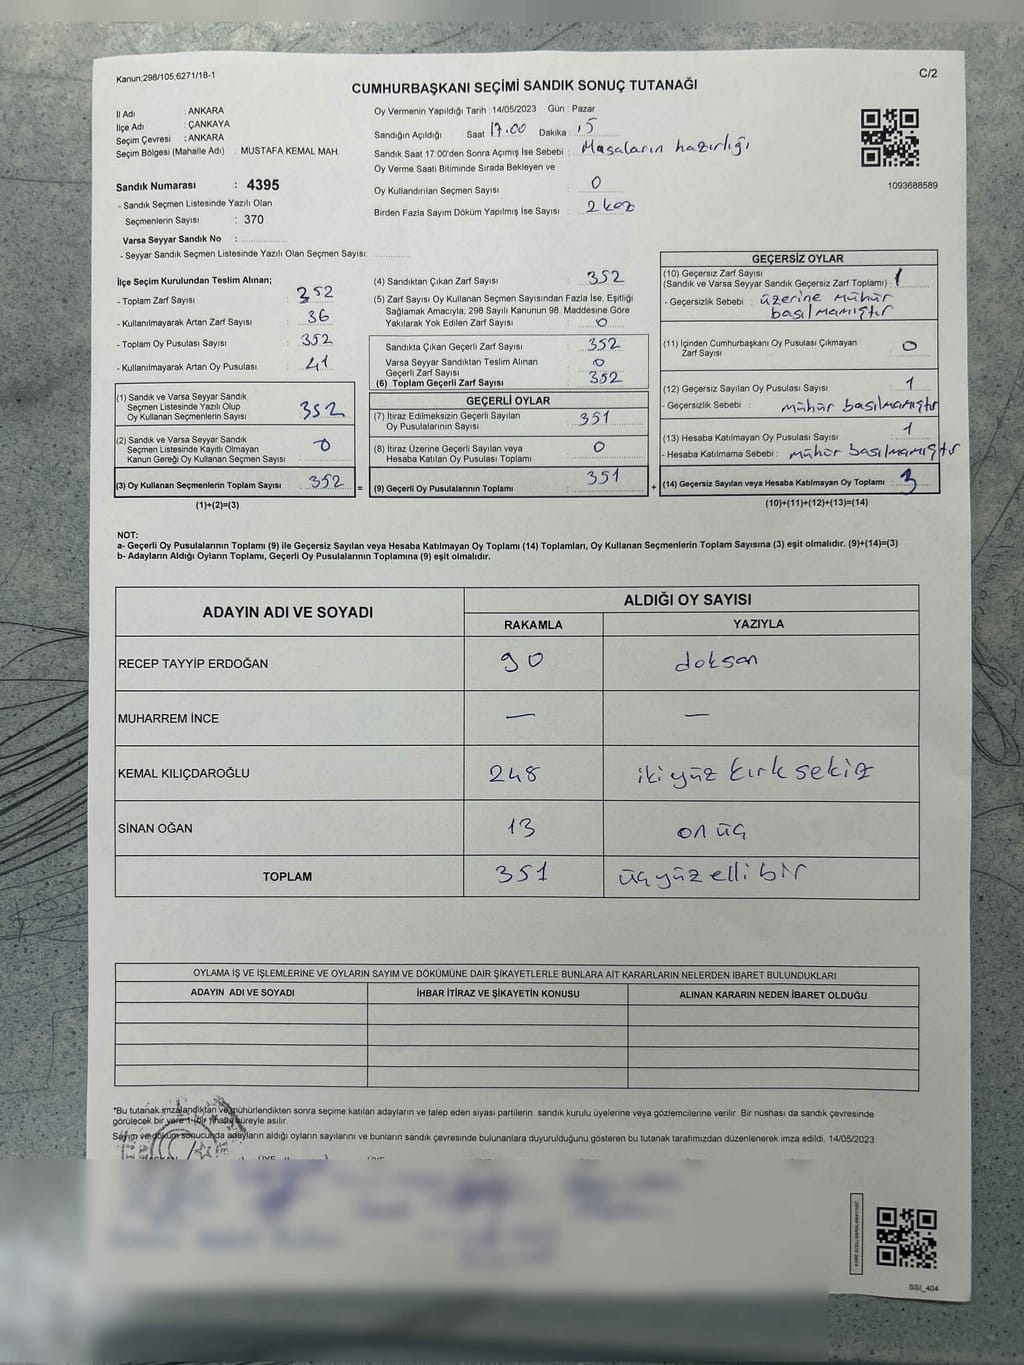 Kanun;298/105,6271/18-1
C/2
CUMHURBAŞKANI SEÇİMİ SANDIK SONUÇ TUTANAĞI
İl Adı : ANKARA
İlçe Adı : ÇANKAYA
Seçim Çevresi : ANKARA
Seçim Bölgesi (Mahalle Adı) : MUSTAFA KEMAL MAH.
Sandık Numarası : 4395
- Sandık Seçmen Listesinde Yazılı Olan
Seçmenlerin Sayısı : 370
Varsa Seyyar Sandık No :
- Seyyar Sandık Seçmen Listesinde Yazılı Olan Seçmen Sayısı:
Oy Vermenin Yapıldığı Tarih : 14/05/2023 Gün : Pazar
Sandığın Açıldığı Saat 17.00 Dakika : 15
Sandık Saat 17.00'den Sonra Açımış İse Sebebi : Masaların hazırlığı
Oy Verme Saati Bitiminde Sırada Bekleyen ve
Oy Kullandırılan Seçmen Sayısı : 0
Birden Fazla Sayım Döküm Yapılmış İse Sayısı : 2 kez
1093688589
İlçe Seçim Kurulundan Teslim Alınan;
- Toplam Zarf Sayısı : 352
- Kullanılmayarak Artan Zarf Sayısı : 36
- Toplam Oy Pusulası Sayısı : 352
- Kullanılmayarak Artan Oy Pusulası : 41
(1) Sandık ve Varsa Seyyar Sandık
Seçmen Listesinde Yazılı Olup
Oy Kullanan Seçmenlerin Sayısı : 352
(2) Sandık ve Varsa Seyyar Sandık
Seçmen Listesinde Kayıtlı Olmayan
Kanun Gereği Oy Kullanan Seçmen Sayısı : 0
(3) Oy Kullanan Seçmenlerin Toplam Sayısı : 352 =
(1)+(2)=(3)
(4) Sandıktan Çıkan Zarf Sayısı : 352
(5) Zarf Sayısı Oy Kullanan Seçmen Sayısından Fazla İse, Eşitliği
Sağlamak Amacıyla; 298 Sayılı Kanunun 98. Maddesine Göre
Yakılarak Yok Edilen Zarf Sayısı : 0
Sandıkta Çıkan Geçerli Zarf Sayısı : 352
Varsa Seyyar Sandıktan Teslim Alınan
Geçerli Zarf Sayısı : 0
(6) Toplam Geçerli Zarf Sayısı : 352
GEÇERLİ OYLAR
(7) İtiraz Edilmeksizin Geçerli Sayılan
Oy Pusulalarının Sayısı : 351
(8) İtiraz Üzerine Geçerli Sayılan veya
Hesaba Katılan Oy Pusulası Toplamı : 0
(9) Geçerli Oy Pusulalarının Toplamı : 351 +
GEÇERSİZ OYLAR
(10) Geçersiz Zarf Sayısı
(Sandık ve Varsa Seyyar Sandık Geçersiz Zarf Toplamı) : 1
- Geçersizlik Sebebi : üzerine mühür
basılmamıştır
(11) İçinden Cumhurbaşkanı Oy Pusulası Çıkmayan
Zarf Sayısı : 0
(12) Geçersiz Sayılan Oy Pusulası Sayısı : 1
- Geçersizlik Sebebi : mühür basılmamıştır
(13) Hesaba Katılmayan Oy Pusulası Sayısı : 1
- Hesaba Katılmama Sebebi : mühür basılmamıştır
(14) Geçersiz Sayılan veya Hesaba Katılmayan Oy Toplamı : 3
(10)+(11)+(12)+(13)=(14)
NOT:
a- Geçerli Oy Pusulalarının Toplamı (9) ile Geçersiz Sayılan veya Hesaba Katılmayan Oy Toplamı (14) Toplamları, Oy Kullanan Seçmenlerin Toplam Sayısına (3) eşit olmalıdır. (9)+(14)=(3)
b- Adayların Aldığı Oyların Toplamı, Geçerli Oy Pusulalarının Toplamına (9) eşit olmalıdır.
ADAYIN ADI VE SOYADI ALDIĞI OY SAYISI
RAKAMLA YAZIYLA
RECEP TAYYİP ERDOĞAN 90 doksan
MUHARREM İNCE — —
KEMAL KILIÇDAROĞLU 248 ikiyüz kırk sekiz
SİNAN OĞAN 13 on üç
TOPLAM 351 üçyüz elli bir
OYLAMA İŞ VE İŞLEMLERİNE VE OYLARIN SAYIM VE DÖKÜMÜNE DAİR ŞİKAYETLERLE BUNLARA AİT KARARLARIN NELERDEN İBARET BULUNDUKLARI
ADAYIN ADI VE SOYADI İHBAR İTİRAZ VE ŞİKAYETİN KONUSU ALINAN KARARIN NEDEN İBARET OLDUĞU
*Bu tutanak imzalandıktan ve mühürlendikten sonra seçime katılan adayların ve talep eden siyasi partilerin sandık kurulu üyelerine veya gözlemcilerine verilir. Bir nüshası da sandık çevresinde
görülecek bir yere 1 (bir) hafta süreyle asılır.
Sayım ve döküm sonucunda adayların aldığı oyların sayılarını ve bunların sandık çevresinde bulunanlara duyurulduğunu gösteren bu tutanak tarafımızdan düzenlenerek imza edildi. 14/05/2023
SSI_404